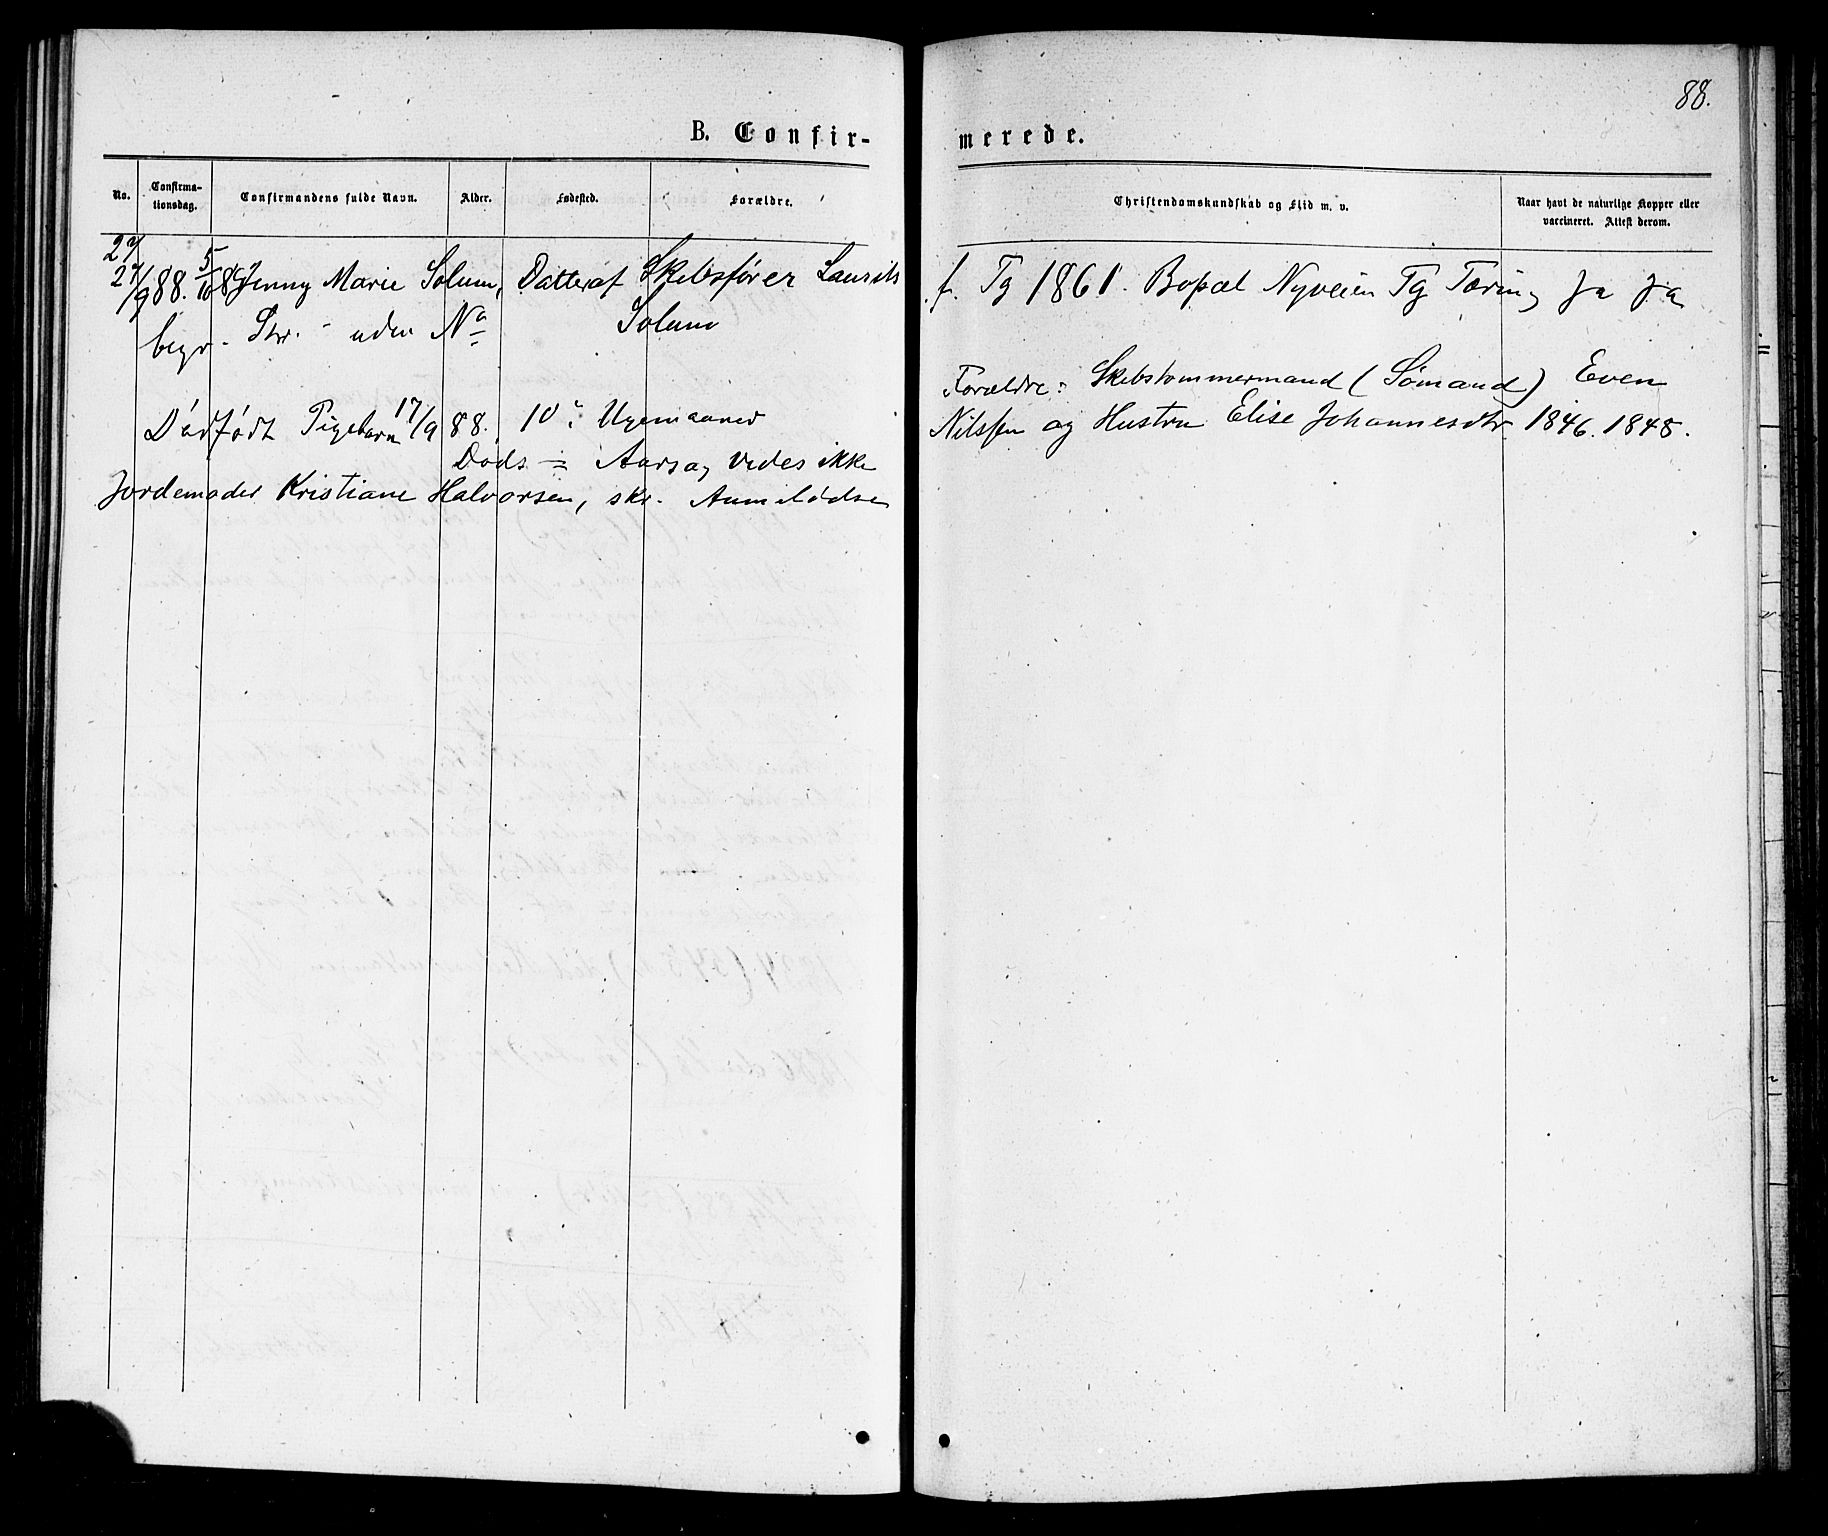 88.
B. Confir-
merede.
No.
Confirma-
tionsdag.
Confirmandens fulde Navn.
Alder.
Fødested.
Forældre.
Christendomskundskab og Flid m. v.
Naar havt de naturlige Kopper eller
vaccineret. Attest derom.
27/9 88. 5/10 Jenny Marie Solum, Datter af Skibsfører Laurits
begr. Skr. - uden No Solum
f. Tg 1861. Bopæl Nyveien Tg Tæring Ja Ja
Dødfødt Pigebarn 17/9 88. 10 Ugemaaned
Døds = Aarsag vides ikke
Jordemoder Kristiane Halvorsen, skr. Anmeldelse
Forældre: Skibstømmermand (Sømand) Even
Nilssen og Hustru Elise Johannesdtr. 1846. 1848.